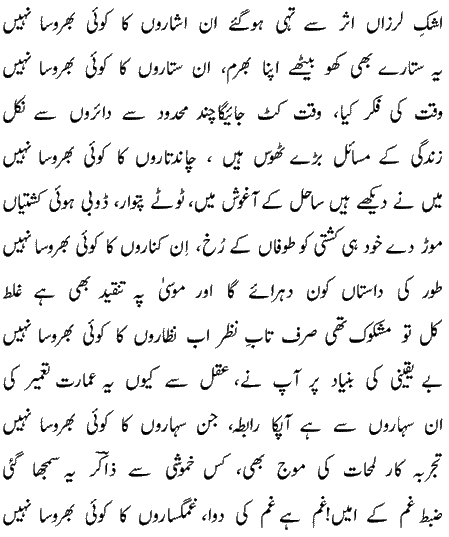 اشکِ لرزاں اثر سے تہی ہوگئے ان اشاروں کا کوئی بھروسا نہیں
یہ ستارے بھی کھو بیٹھے اپنا بھرم، ان ستاروں کا کوئی بھروسا نہیں
وقت کی فکر کیا، وقت کٹ جائیگا چند محدود سے دائروں سے نکل
زندگی کے مسائل بڑے ٹھوس ہیں ، چاند تاروں کا کوئی بھروسا نہیں
میں نے دیکھے ہیں ساحل کے آغوش میں، ٹوٹے پتوار، ڈوبی ہوئی کشتیاں
موڑ دے خود ہی کشتی کو طوفاں کے رُخ، اِن کناروں کا کوئی بھروسا نہیں
طور کی داستاں کون دہرائے گا اور موسیٰ پہ تنقید بھی ہے غلط
کل تو مشکوک تھی صرف تابِ نظر اب نظاروں کا کوئی بھروسا نہیں
بے یقینی کی بنیاد پر آپ نے، عقل سے کیوں یہ عمارت تعمیر کی
ان سہاروں سے ہے آپکا رابطہ، جن سہاروں کا کوئی بھروسا نہیں
تجربہ کار لمحات کی موج بھی، کس خموشی سے ذاکرؔ یہ سمجھا گئی
ضبط غم کے امیں! غم ہے غم کی دوا، غمگساروں کا کوئی بھروسا نہیں